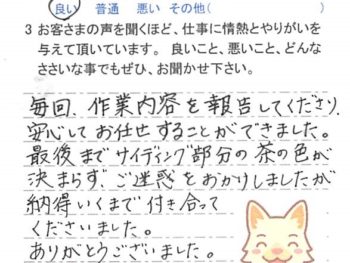 良い 普通 悪い その他( )
3 お客さまの声を聞くほど、仕事に情熱とやりがいを
与えて頂いています。良いこと、悪いこと、どんな
ささいな事でもぜひ、お聞かせ下さい。
毎回、作業内容を報告してくださり、
安心してお任せすることができました。
最後までサイディング部分の茶の色が
決まらず、ご迷惑をおかけしましたが
納得いくまで付き合って
くださいました。
ありがとうございました。